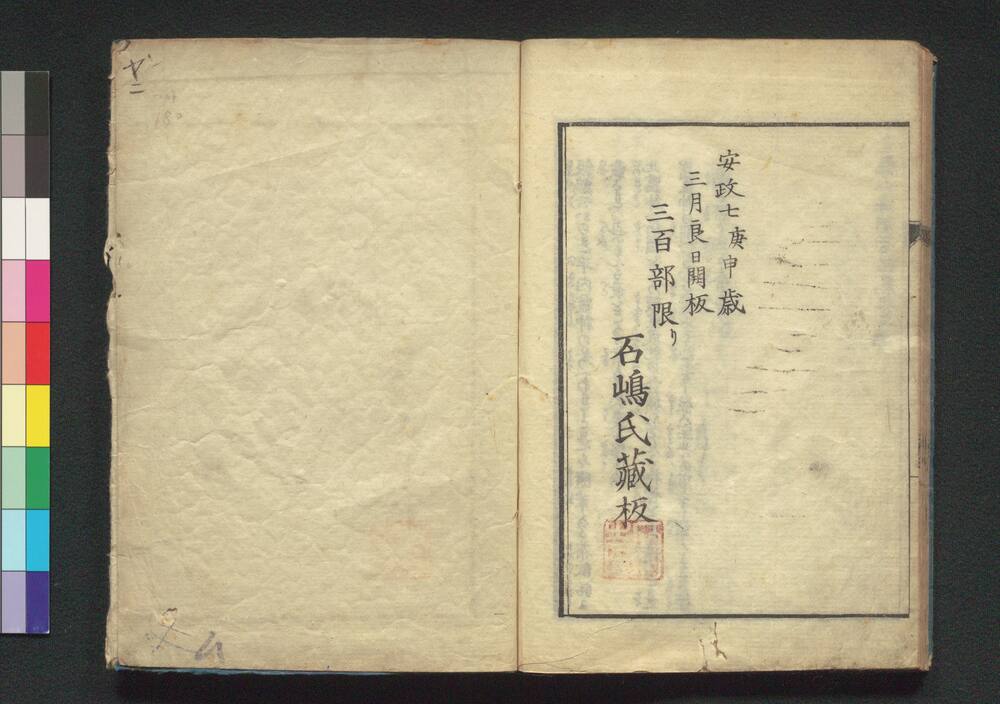 安政七庚申歳
三月良日開板
三百部限り
石嶋氏藏板